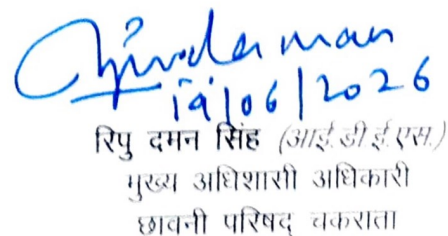 19/06/2026
रिपु दमन सिंह (आई.डी.ई.एस.)
मुख्य अधिशासी अधिकारी
छावनी परिषद् चकराता